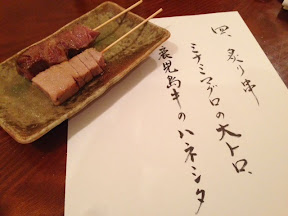 四、炙り串
ミナミマグロの大トロ、
鹿児島牛のハネシタ